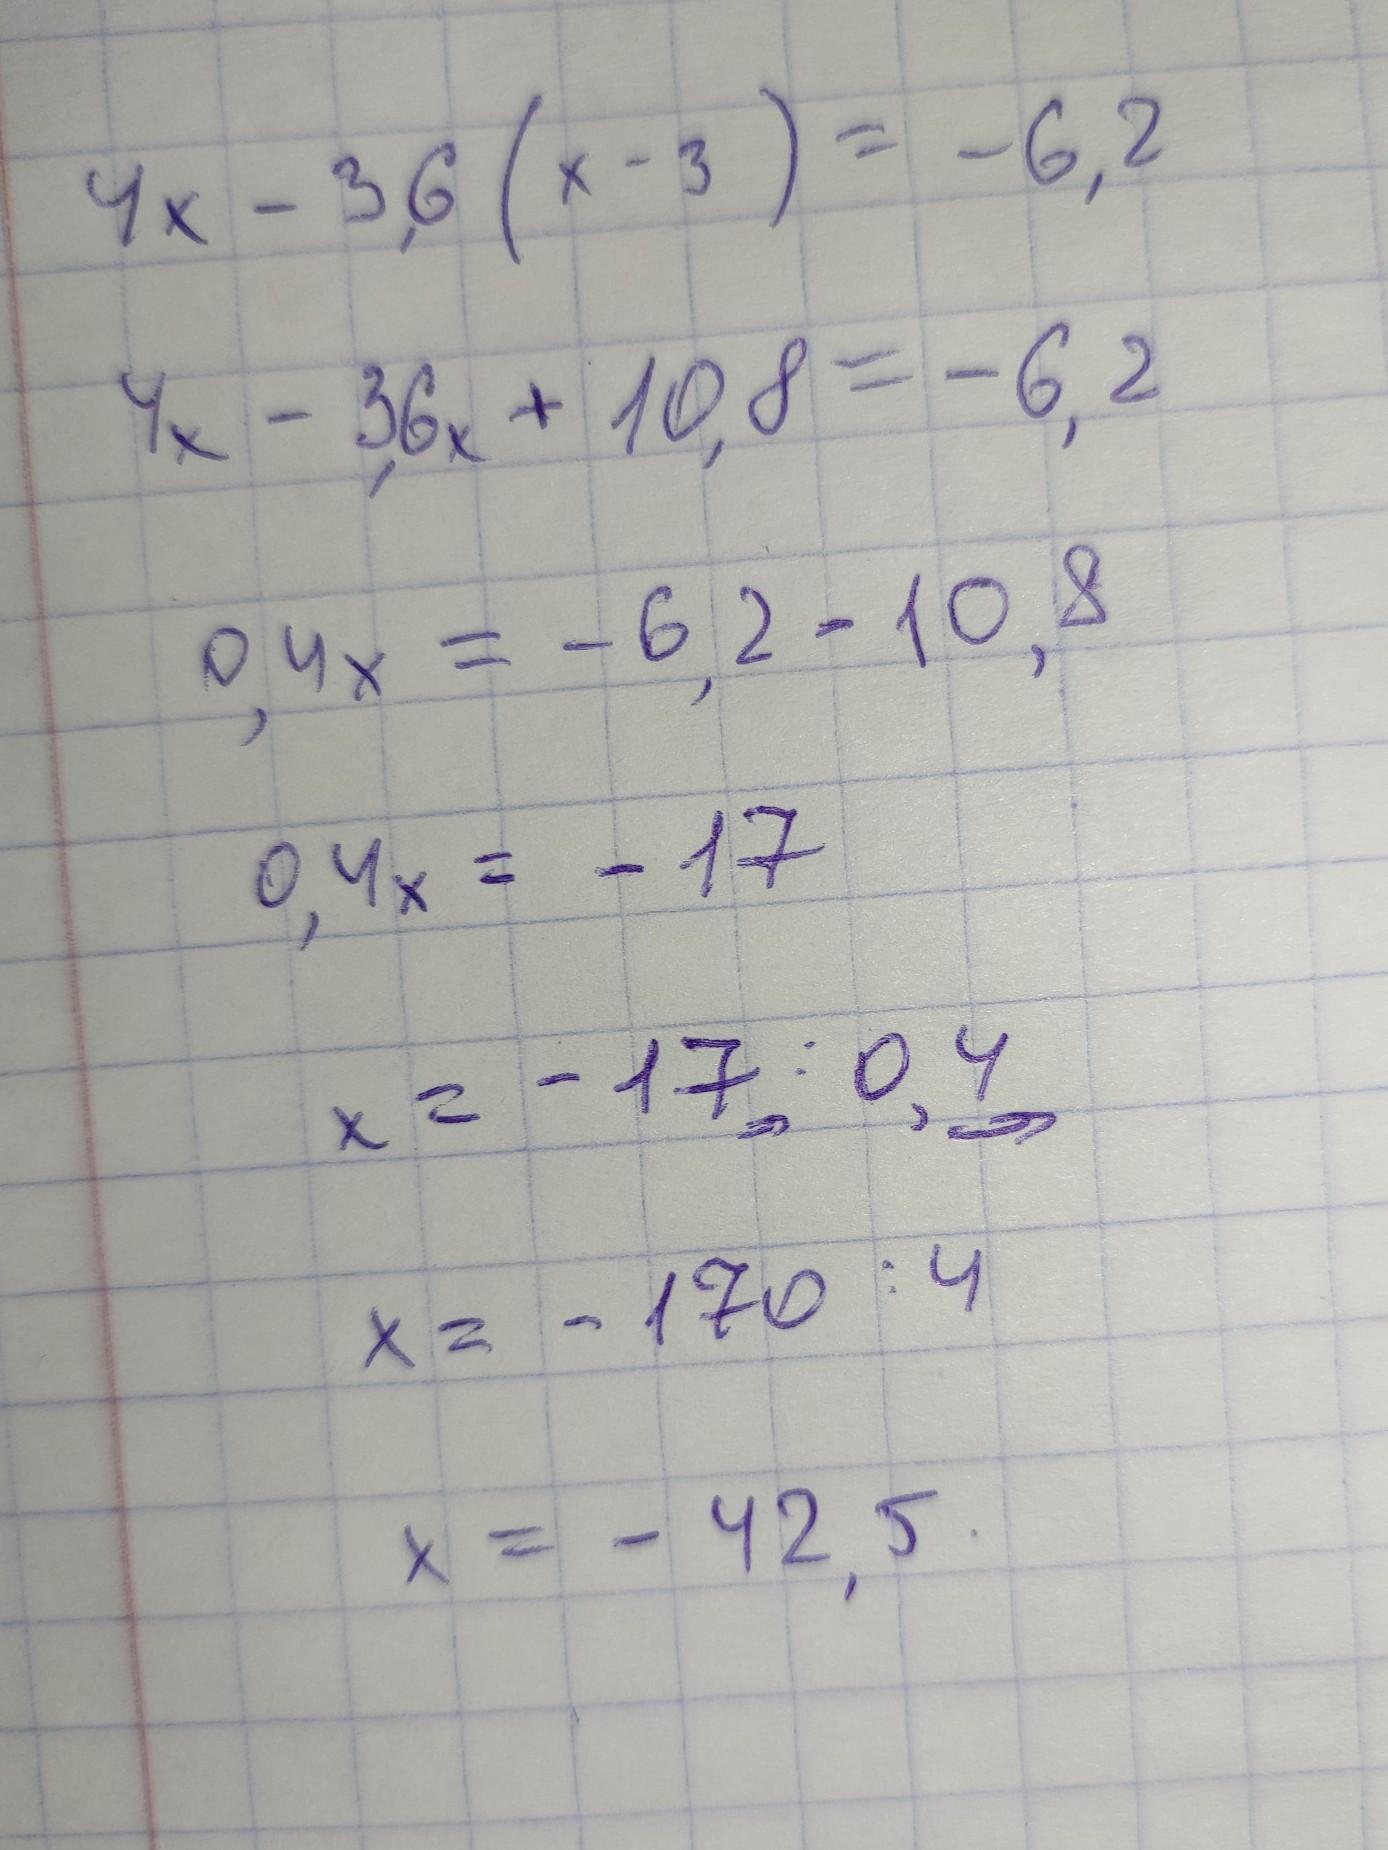 4x - 3,6 (x - 3) = -6,2
4x - 3,6x + 10,8 = -6,2
0,4x = -6,2 - 10,8
0,4x = -17
x = -17, : 0,4
x = -170 : 4
x = -42,5.